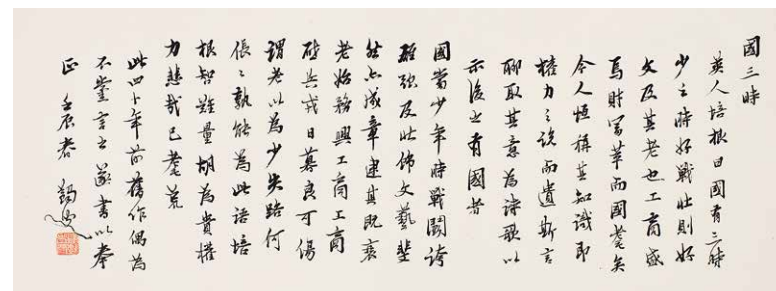 國三時
英人培根曰國有三時
少之時好戰壯則好
文及其老也工商盛
焉財富萃而國耄矣
今人恒稱其知識即
權力之說而遺斯言
聊取其意為詩歌以
示後之有國者
國當少年時戰鬭誇
雄強及壯飾文藝斐
然亦成章逮其既衰
老始務興工商工商
兵戎日暮良可傷
謂老以為少失路何
倀〻孰能為此語培
根知難量胡為貴權
力悲哉已耄荒
此四十年前舊作偶為
不黨言之遂書以奉
正 壬辰春 蠲叟